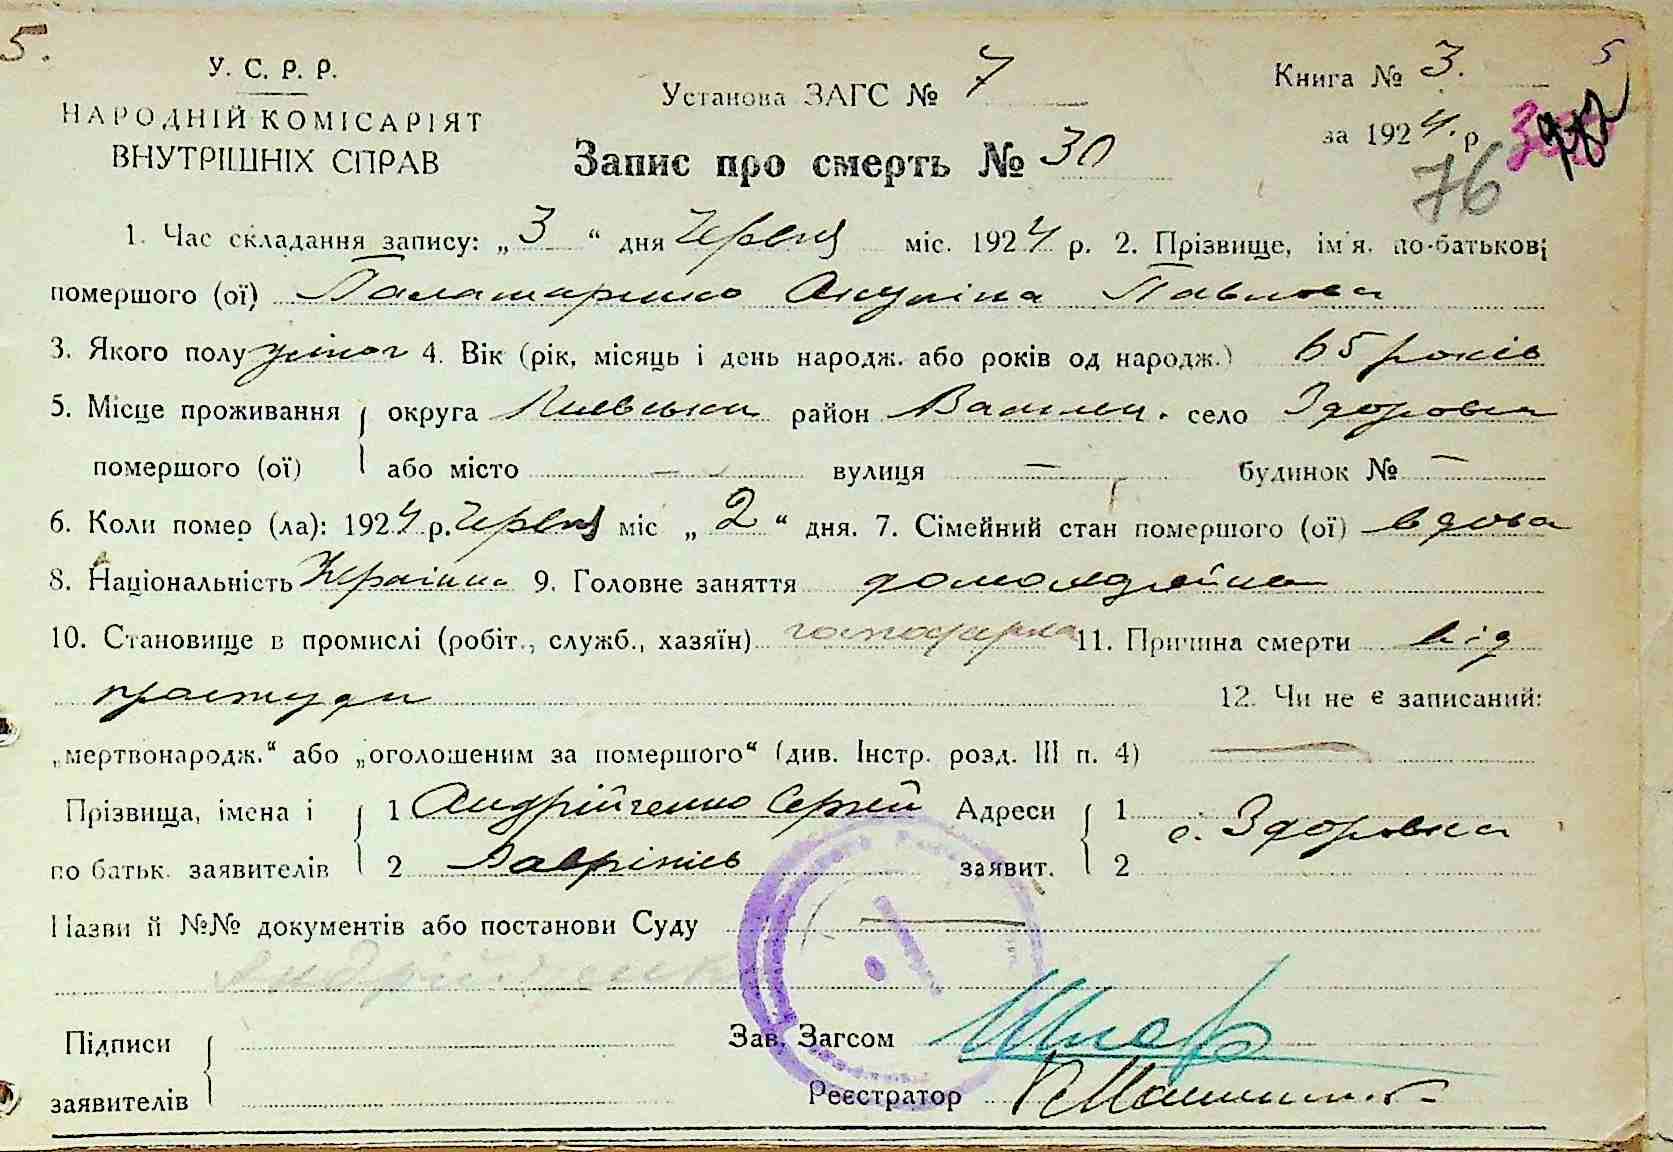 5.
У. С. Р. Р.
НАРОДНІЙ КОМІСАРІЯТ
ВНУТРІШНІХ СПРАВ
Установа ЗАГС № 7
Книга № 3. 5
за 1924. р
76
Запис про смерть № 30
1. Час складання запису: „3“ дня Червня міс. 1924 р. 2. Прізвище, ім'я, по-батькові
помершого (ої) Паламаренко Акуліна Павлова
3. Якого полу жіноч 4. Вік (рік, місяць і день народж. або років од народж.) 65 років
5. Місце проживання округа Київська район Васильк. село Здоровка
помершого (ої) або місто — вулиця — будинок № —
6. Коли помер (ла): 1924 р. Червня міс „2“ дня. 7. Сімейний стан помершого (ої) вдова
8. Національність Українка 9. Головне заняття домохазяйка
10. Становище в промислі (робіт., служб., хазяїн) господарка 11. Причина смерти від
простуди 12. Чи не є записаний:
„мертвонародж.“ або „оголошеним за помершого“ (див. Інстр. розд. III п. 4) —
Прізвища, імена і 1 Андрійченко Сергей Адреси 1 с. Здоровка
по батьк. заявителів 2 Лаврінів заявит. 2
Назви й №№ документів або постанови Суду —
Андрійченко
Підписи Зав. Загсом
заявителів Реєстратор